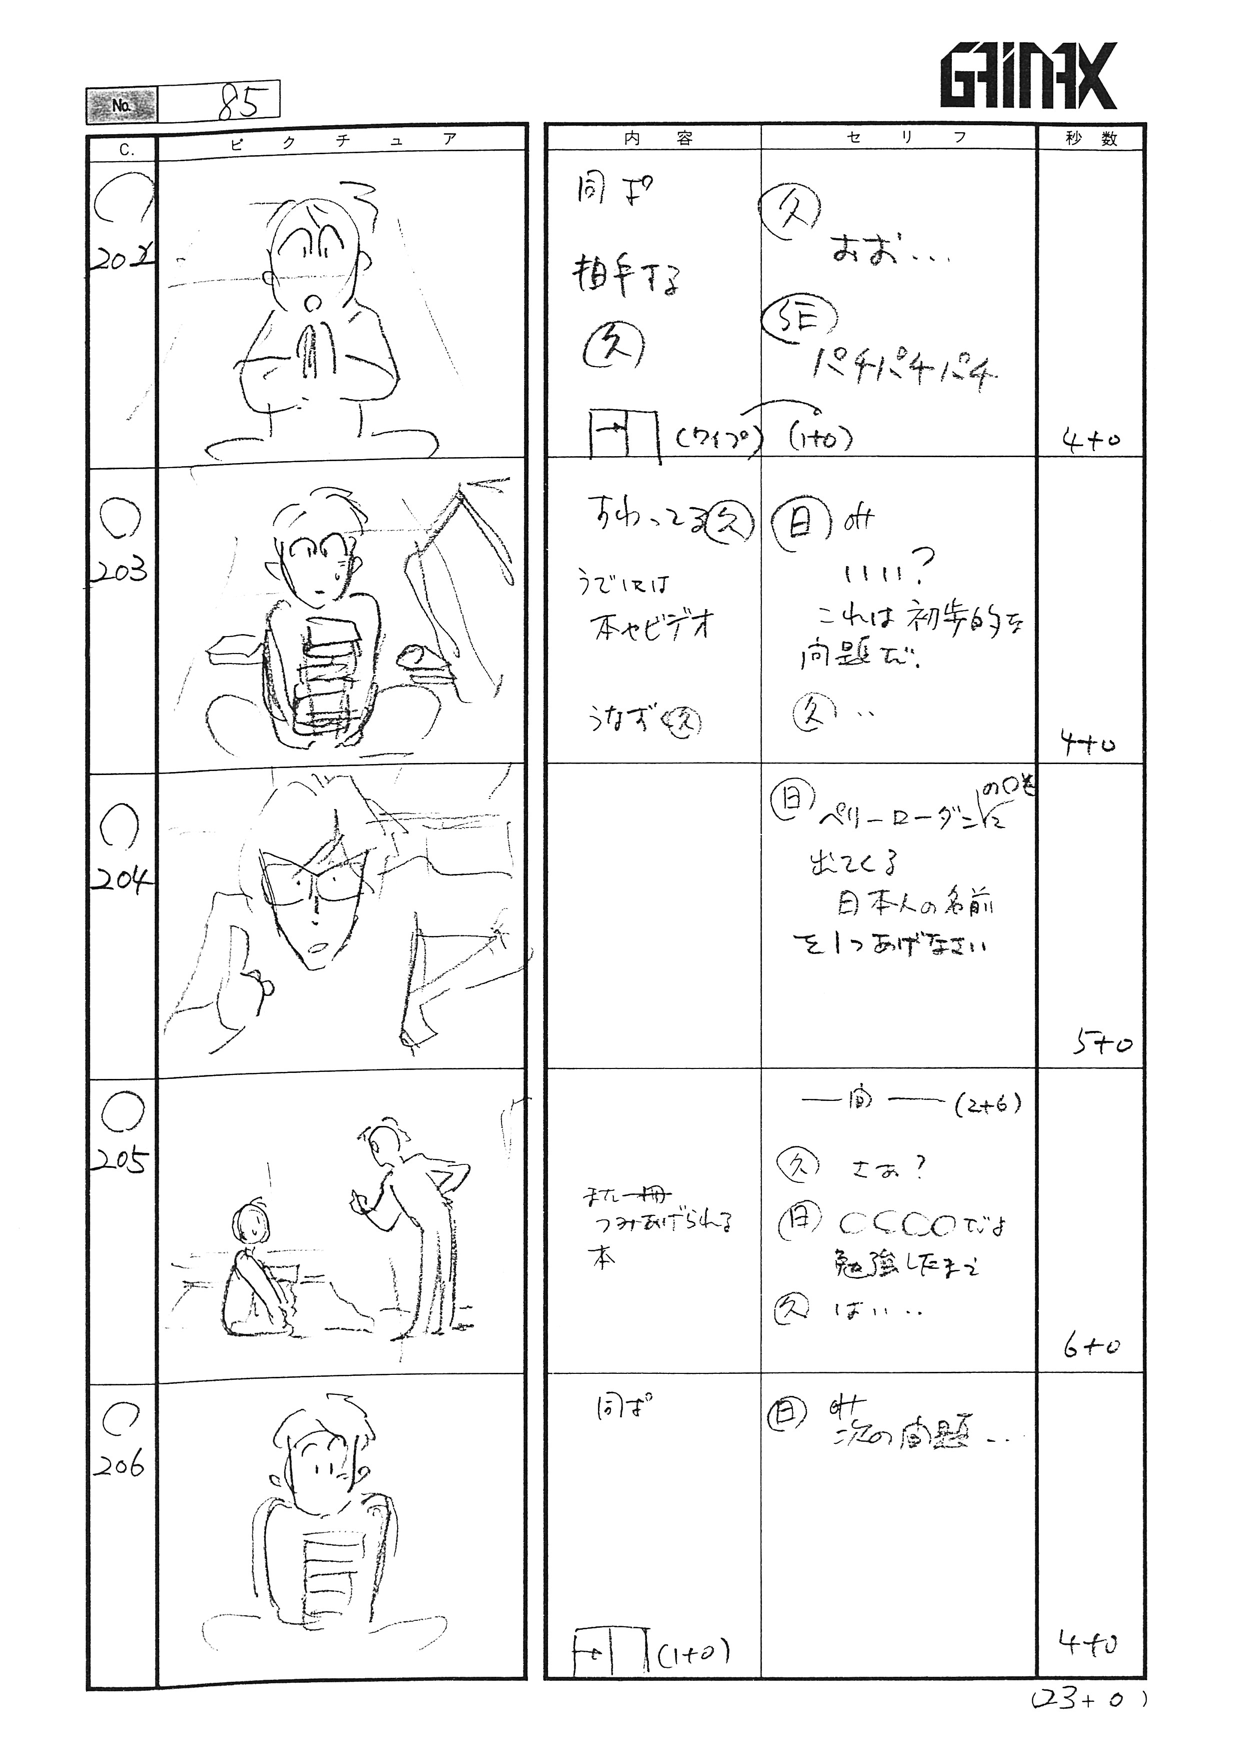 GAINAX
No. 85
C. ピクチュア 内容 セリフ 秒数
202
同ポ
拍手する
久
(ワイプ) (1+0)
久
おお...
SE
パチパチパチ
4+0
203
すわってる久
うでには
本やビデオ
うなずく久
日 off
いい?
これは初歩的な
問題だ.
久 ‥
4+0
204
日 ペリーローダンに
出てくる
日本人の名前
を1つあげなさい
5+0
205
また一冊
つみあげられる
本
―間― (2+6)
久 さあ?
日 ○○○○だよ
勉強したまえ
久 はい‥
6+0
206
同ポ
(1+0)
日 off
次の問題...
4+0
(23+0)